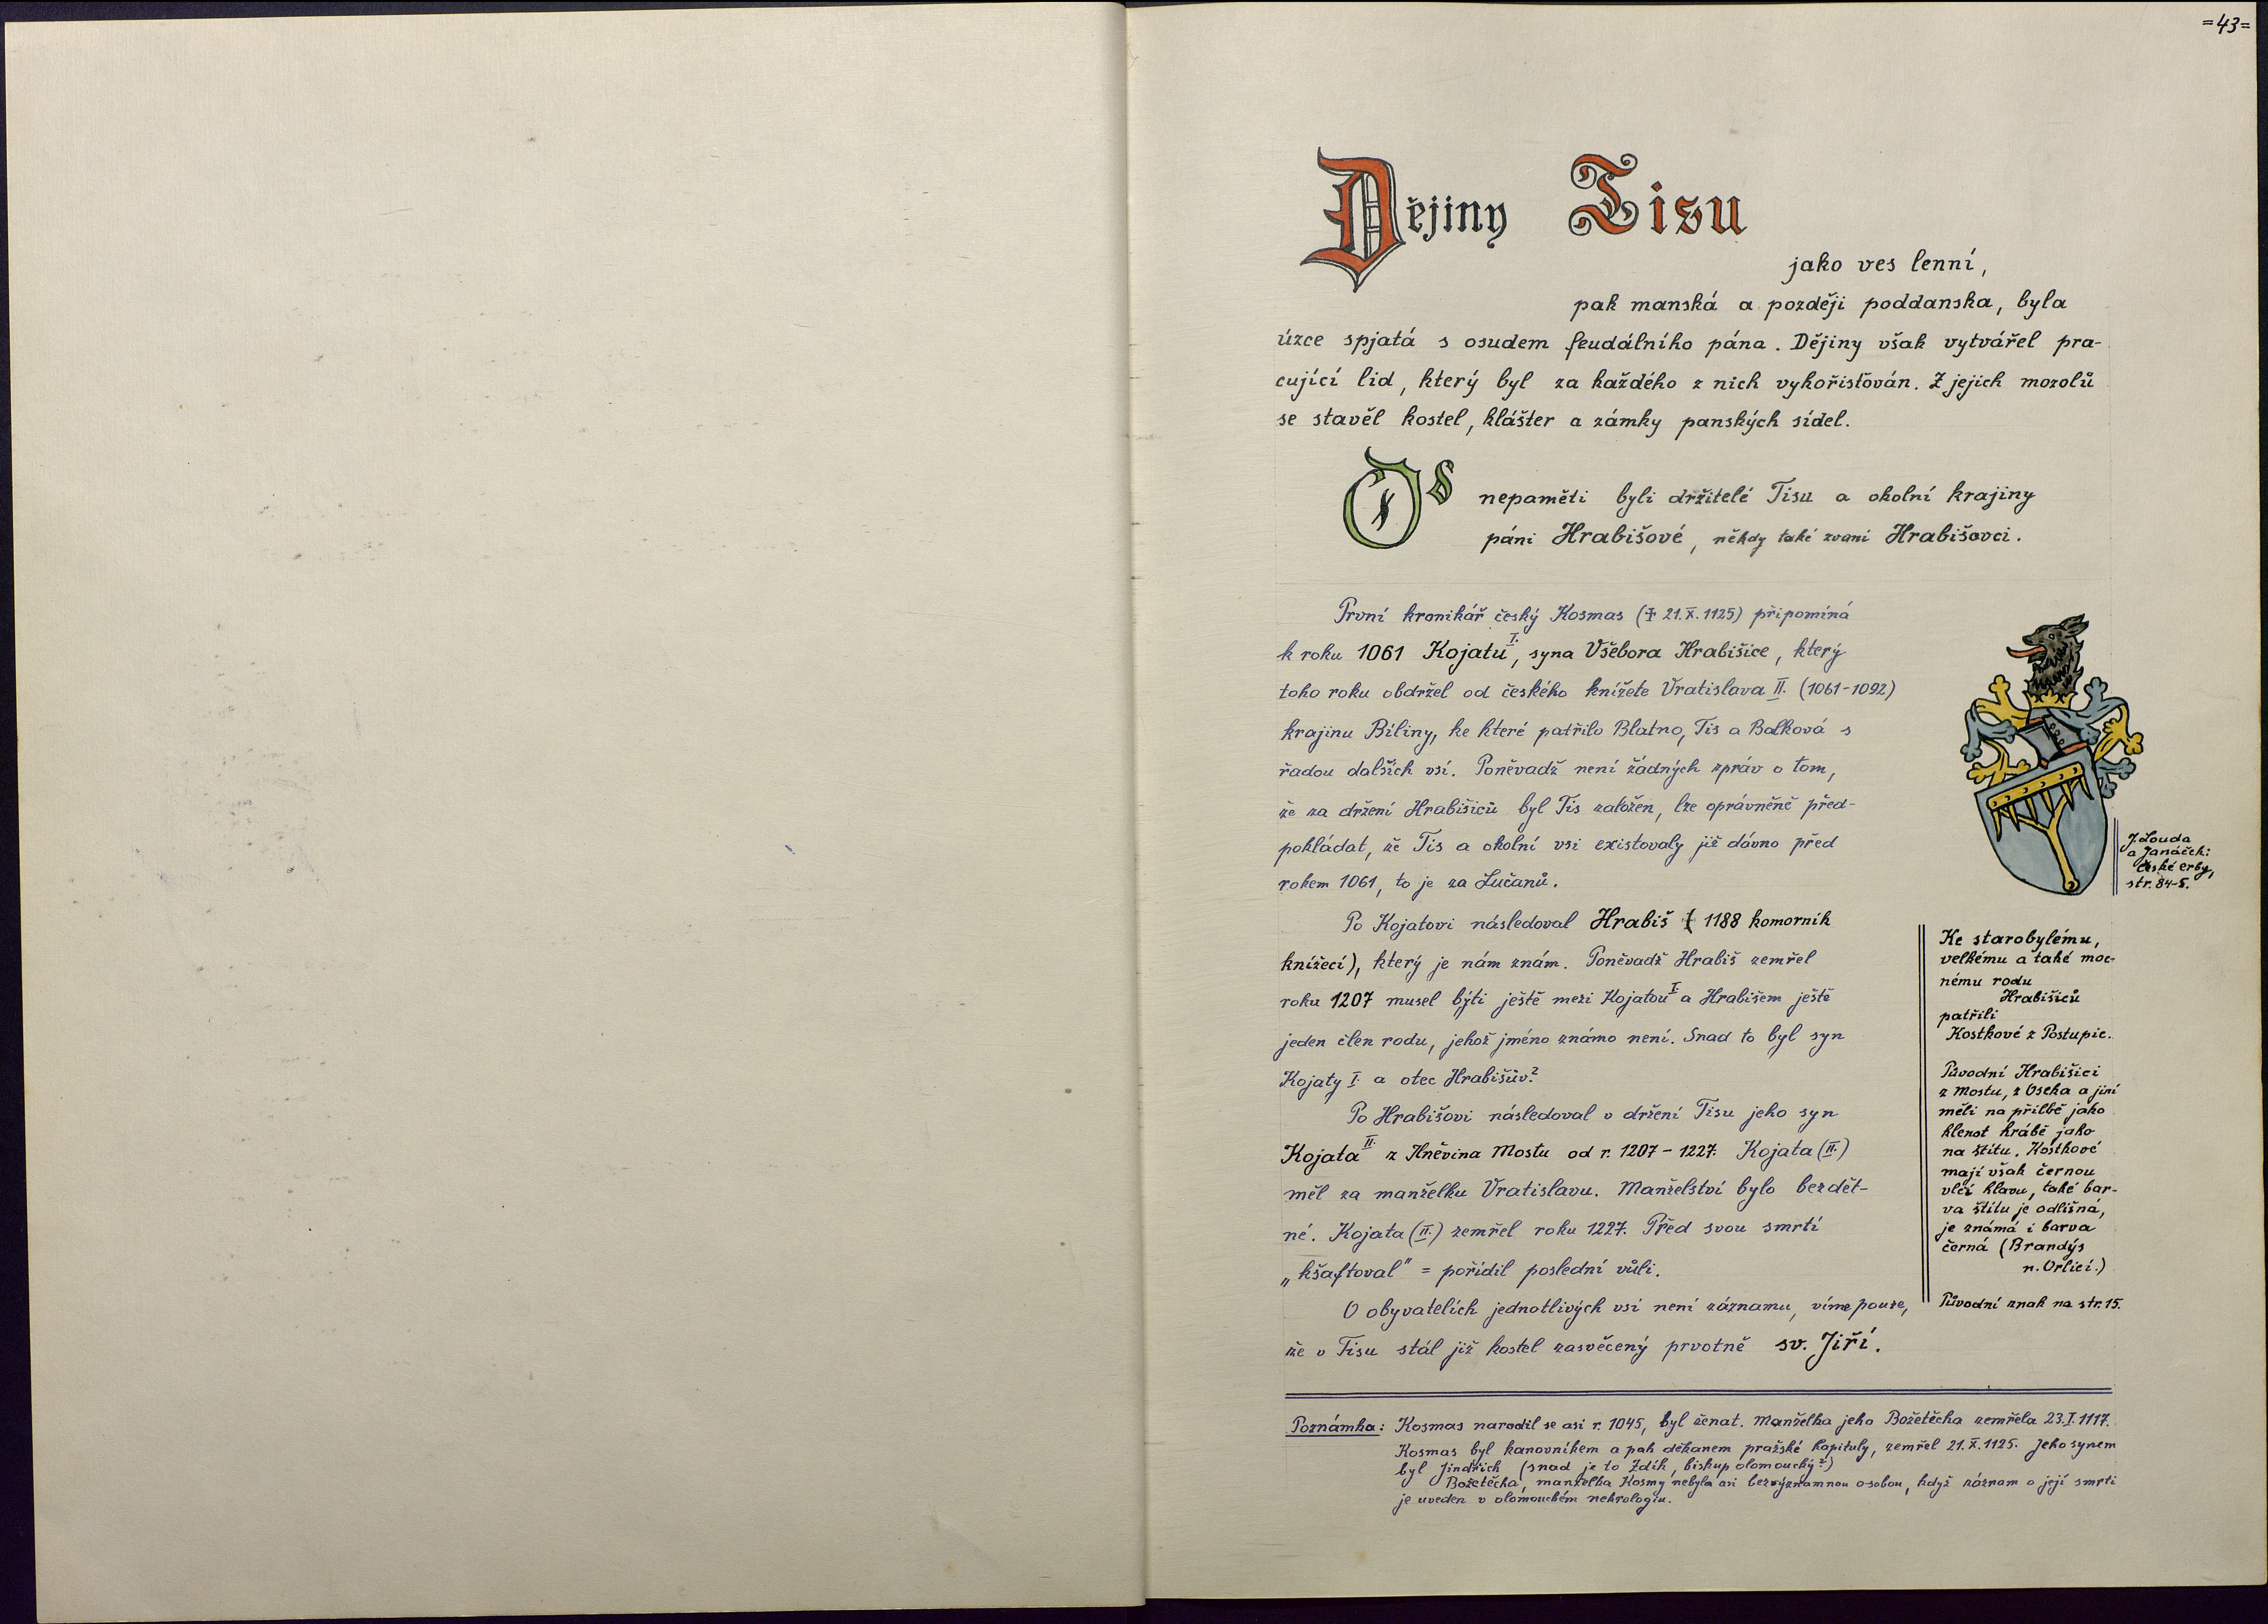 =43=
Dějiny Tisu
jako ves lenní,
pak manská a později poddanska, byla
úzce spjatá s osudem feudálního pána. Dějiny však vytvářel pra-
cující lid, který byl za každého z nich vykořisťován. Z jejich mozolů
se stavěl kostel, klášter a zámky panských sídel.
Od nepaměti byli držitelé Tisu a okolní krajiny
páni Hrabišové, někdy také zvaní Hrabišovci.
První kronikář český Kosmas (✝ 21.X.1125) připomíná
k roku 1061 Kojatu I., syna Všebora Hrabišice, který
toho roku obdržel od českého knížete Vratislava II. (1061-1092)
krajinu Bíliny, ke které patřilo Blatno, Tis a Balková s
řadou dalších vsí. Poněvadž není žádných zpráv o tom,
že za držení Hrabišiců byl Tis založen, lze oprávněně před-
pokládat, že Tis a okolní vsi existovaly již dávno před
rokem 1061, to je za Lučanů.
Po Kojatovi následoval Hrabiš ( 1188 komorník
knížecí), který je nám znám. Poněvadž Hrabiš zemřel
roku 1207 musel býti ještě mezi Kojatou I. a Hrabišem ještě
jeden člen rodu, jehož jméno známo není. Snad to byl syn
Kojaty I. a otec Hrabišův?
Po Hrabišovi následoval v držení Tisu jeho syn
Kojata II. z Hněvina Mostu od r. 1207 - 1227. Kojata (II.)
měl za manželku Vratislavu. Manželství bylo bezdět-
né. Kojata (II.) zemřel roku 1227. Před svou smrtí
„kšaftoval" = pořídil poslední vůli.
O obyvatelích jednotlivých vsí není záznamu, víme pouze,
že v Tisu stál již kostel zasvěcený prvotně sv. Jiří.
J. Louda
a Janáček:
České erby,
str. 84-5.
Ke starobylému,
velkému a také moc-
nému rodu
Hrabišiců
patřili
Kostkové z Postupic.
Původní Hrabišici
z Mostu, z Oseka a jiní
měli na přilbě jako
klenot hrábě jako
na štítu. Kostkové
mají však černou
vlčí hlavu, také bar-
va štítu je odlišná,
je známá i barva
černá (Brandýs
n. Orlicí.)
Původní znak na str. 15.
Poznámka: Kosmas narodil se asi r. 1045, byl ženat. Manželka jeho Božetěcha zemřela 23.I.1117.
Kosmas byl kanovníkem a pak děkanem pražské kapituly, zemřel 21.X.1125. Jeho synem
byl Jindřich (snad je to Zdík, biskup olomoucký?)
Božetěcha, manželka Kosmy nebyla asi bezvýznamnou osobou, když záznam o její smrti
je uveden v olomouckém nekrologiu.